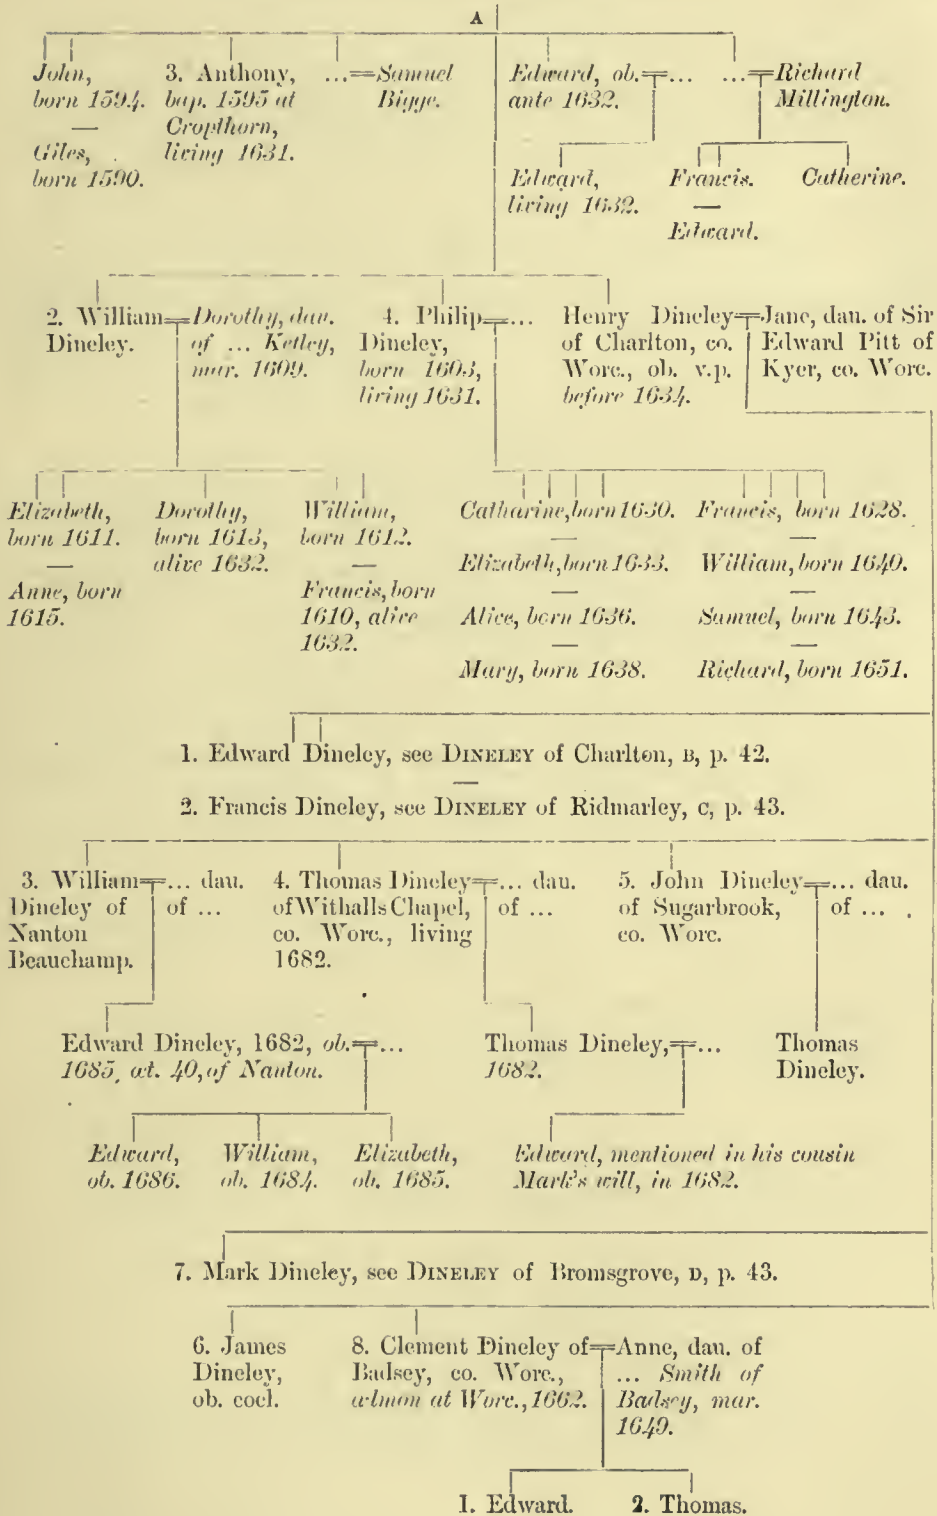 A
John,
born 1594.
—
Giles,
born 1590.
3. Anthony,
bap. 1595 at
Cropthorn,
living 1631.
...=Samuel
Bigge.
Edward, ob.=...
ante 1632.
...=Richard
Millington.
Edward,
living 1632.
Francis.
—
Edward.
Catherine.
2. William=Dorothy, dau.
Dineley. of ... Ketley,
mar. 1609.
4. Philip=...
Dineley,
born 1603,
living 1631.
Henry Dineley=Jane, dau. of Sir
of Charlton, co. Edward Pitt of
Worc., ob. v.p. Kyer, co. Worc.
before 1634.
Elizabeth,
born 1611.
—
Anne, born
1615.
Dorothy,
born 1613,
alive 1632.
William,
born 1612.
—
Francis, born
1610, alive
1632.
Catharine, born 1630.
—
Elizabeth, born 1633.
—
Alice, born 1636.
—
Mary, born 1638.
Francis, born 1628.
—
William, born 1640.
—
Samuel, born 1643.
—
Richard, born 1651.
1. Edward Dineley, see DINELEY of Charlton, B, p. 42.
—
2. Francis Dineley, see DINELEY of Ridmarley, C, p. 43.
3. William=... dau.
Dineley of of ...
Nanton
Beauchamp.
4. Thomas Dineley=... dau.
of Withalls Chapel, of ...
co. Worc., living
1682.
5. John Dineley=... dau.
of Sugarbrook, of ...
co. Worc.
Edward Dineley, 1682, ob.=...
1685, æt. 40, of Nanton.
Thomas Dineley,=...
1682.
Thomas
Dineley.
Edward,
ob. 1686.
William,
ob. 1684.
Elizabeth,
ob. 1685.
Edward, mentioned in his cousin
Mark's will, in 1682.
7. Mark Dineley, see DINELEY of Bromsgrove, D, p. 43.
6. James
Dineley,
ob. cœl.
8. Clement Dineley of=Anne, dau. of
Badsey, co. Worc., ... Smith of
admon at Worc., 1662. Badsey, mar.
1649.
1. Edward.
2. Thomas.